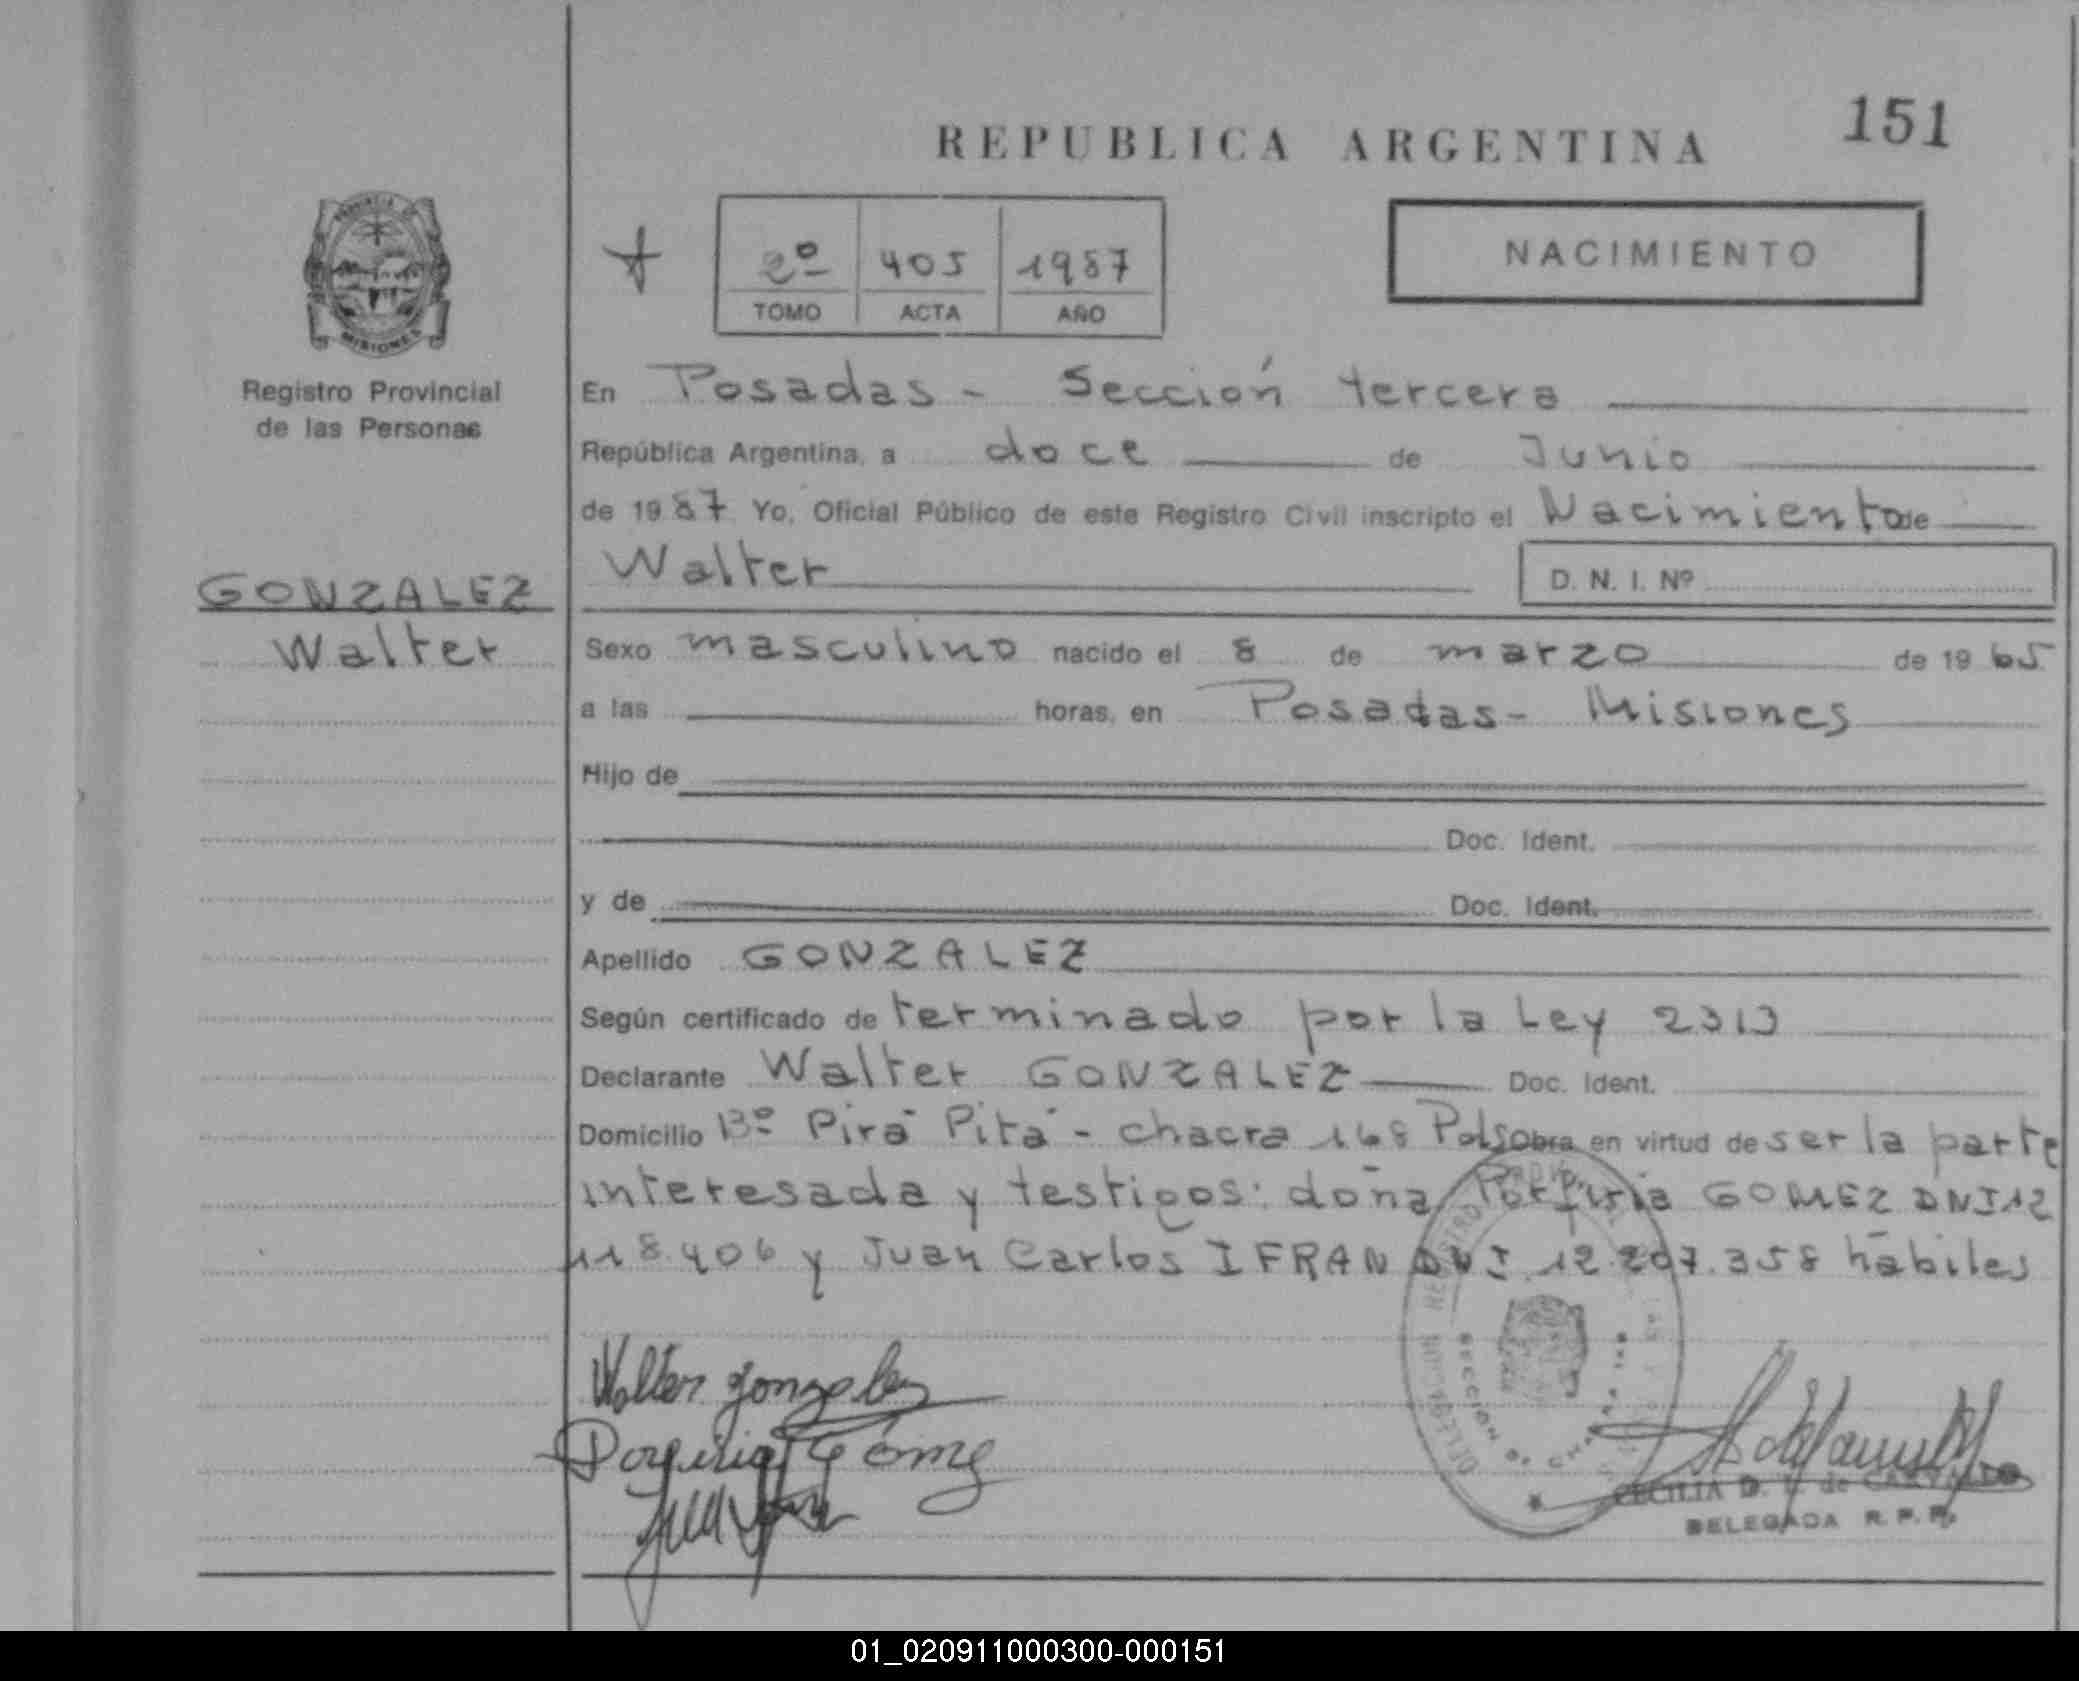 REPUBLICA ARGENTINA
151
NACIMIENTO
2º 405 1987
TOMO ACTA AÑO
PROVINCIA DE
MISIONES
Registro Provincial
de las Personas
GONZALEZ
Walter
En Posadas - Sección tercera
República Argentina, a doce de Junio
de 1987 Yo, Oficial Público de este Registro Civil inscripto el Nacimiento de
Walter D. N. I. Nº
Sexo masculino nacido el 8 de marzo de 1965
a las horas, en Posadas - Misiones
Hijo de
Doc. Ident.
y de Doc. Ident.
Apellido GONZALEZ
Según certificado de terminado por la Ley 2313
Declarante Walter GONZALEZ Doc. Ident.
Domicilio Bº Pirá Pitá - chacra 168 Obra en virtud de ser la parte
interesada y testigos: doña Porfiria GOMEZ DNI 12
118.406 y Juan Carlos IFRAN DNI 12.207.358 hábiles
Walter Gonzalez
Porfiria Gómez
CECILIA D. de
DELEGADA R. P. P.
01_020911000300-000151